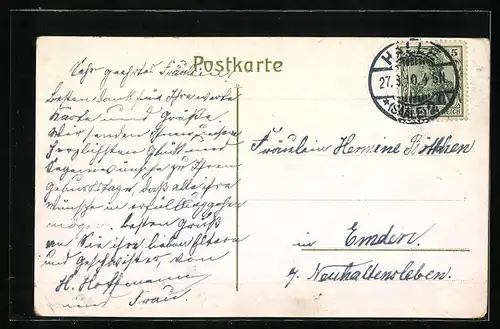 Postkarte
HALLE
27.3.10. 4-5N.
* (SAALE) *
5
REICH
Sehr geehrtes Fräulein!
Besten Dank für Ihre werte
Karte und Grüße.
Wir senden Ihnen unsere
herzlichsten Glück und
Segenwünsche zu Ihrem
Geburtstage, daß alle ihre
Wünsche in erfüllung gehen
mögen. besten Gruß
an Sie ihre lieben Eltern
und Geschwister, von
H. Hoffmann
und Frau.
Fräulein Hermine
in Emden.
b. Neuhaldensleben.